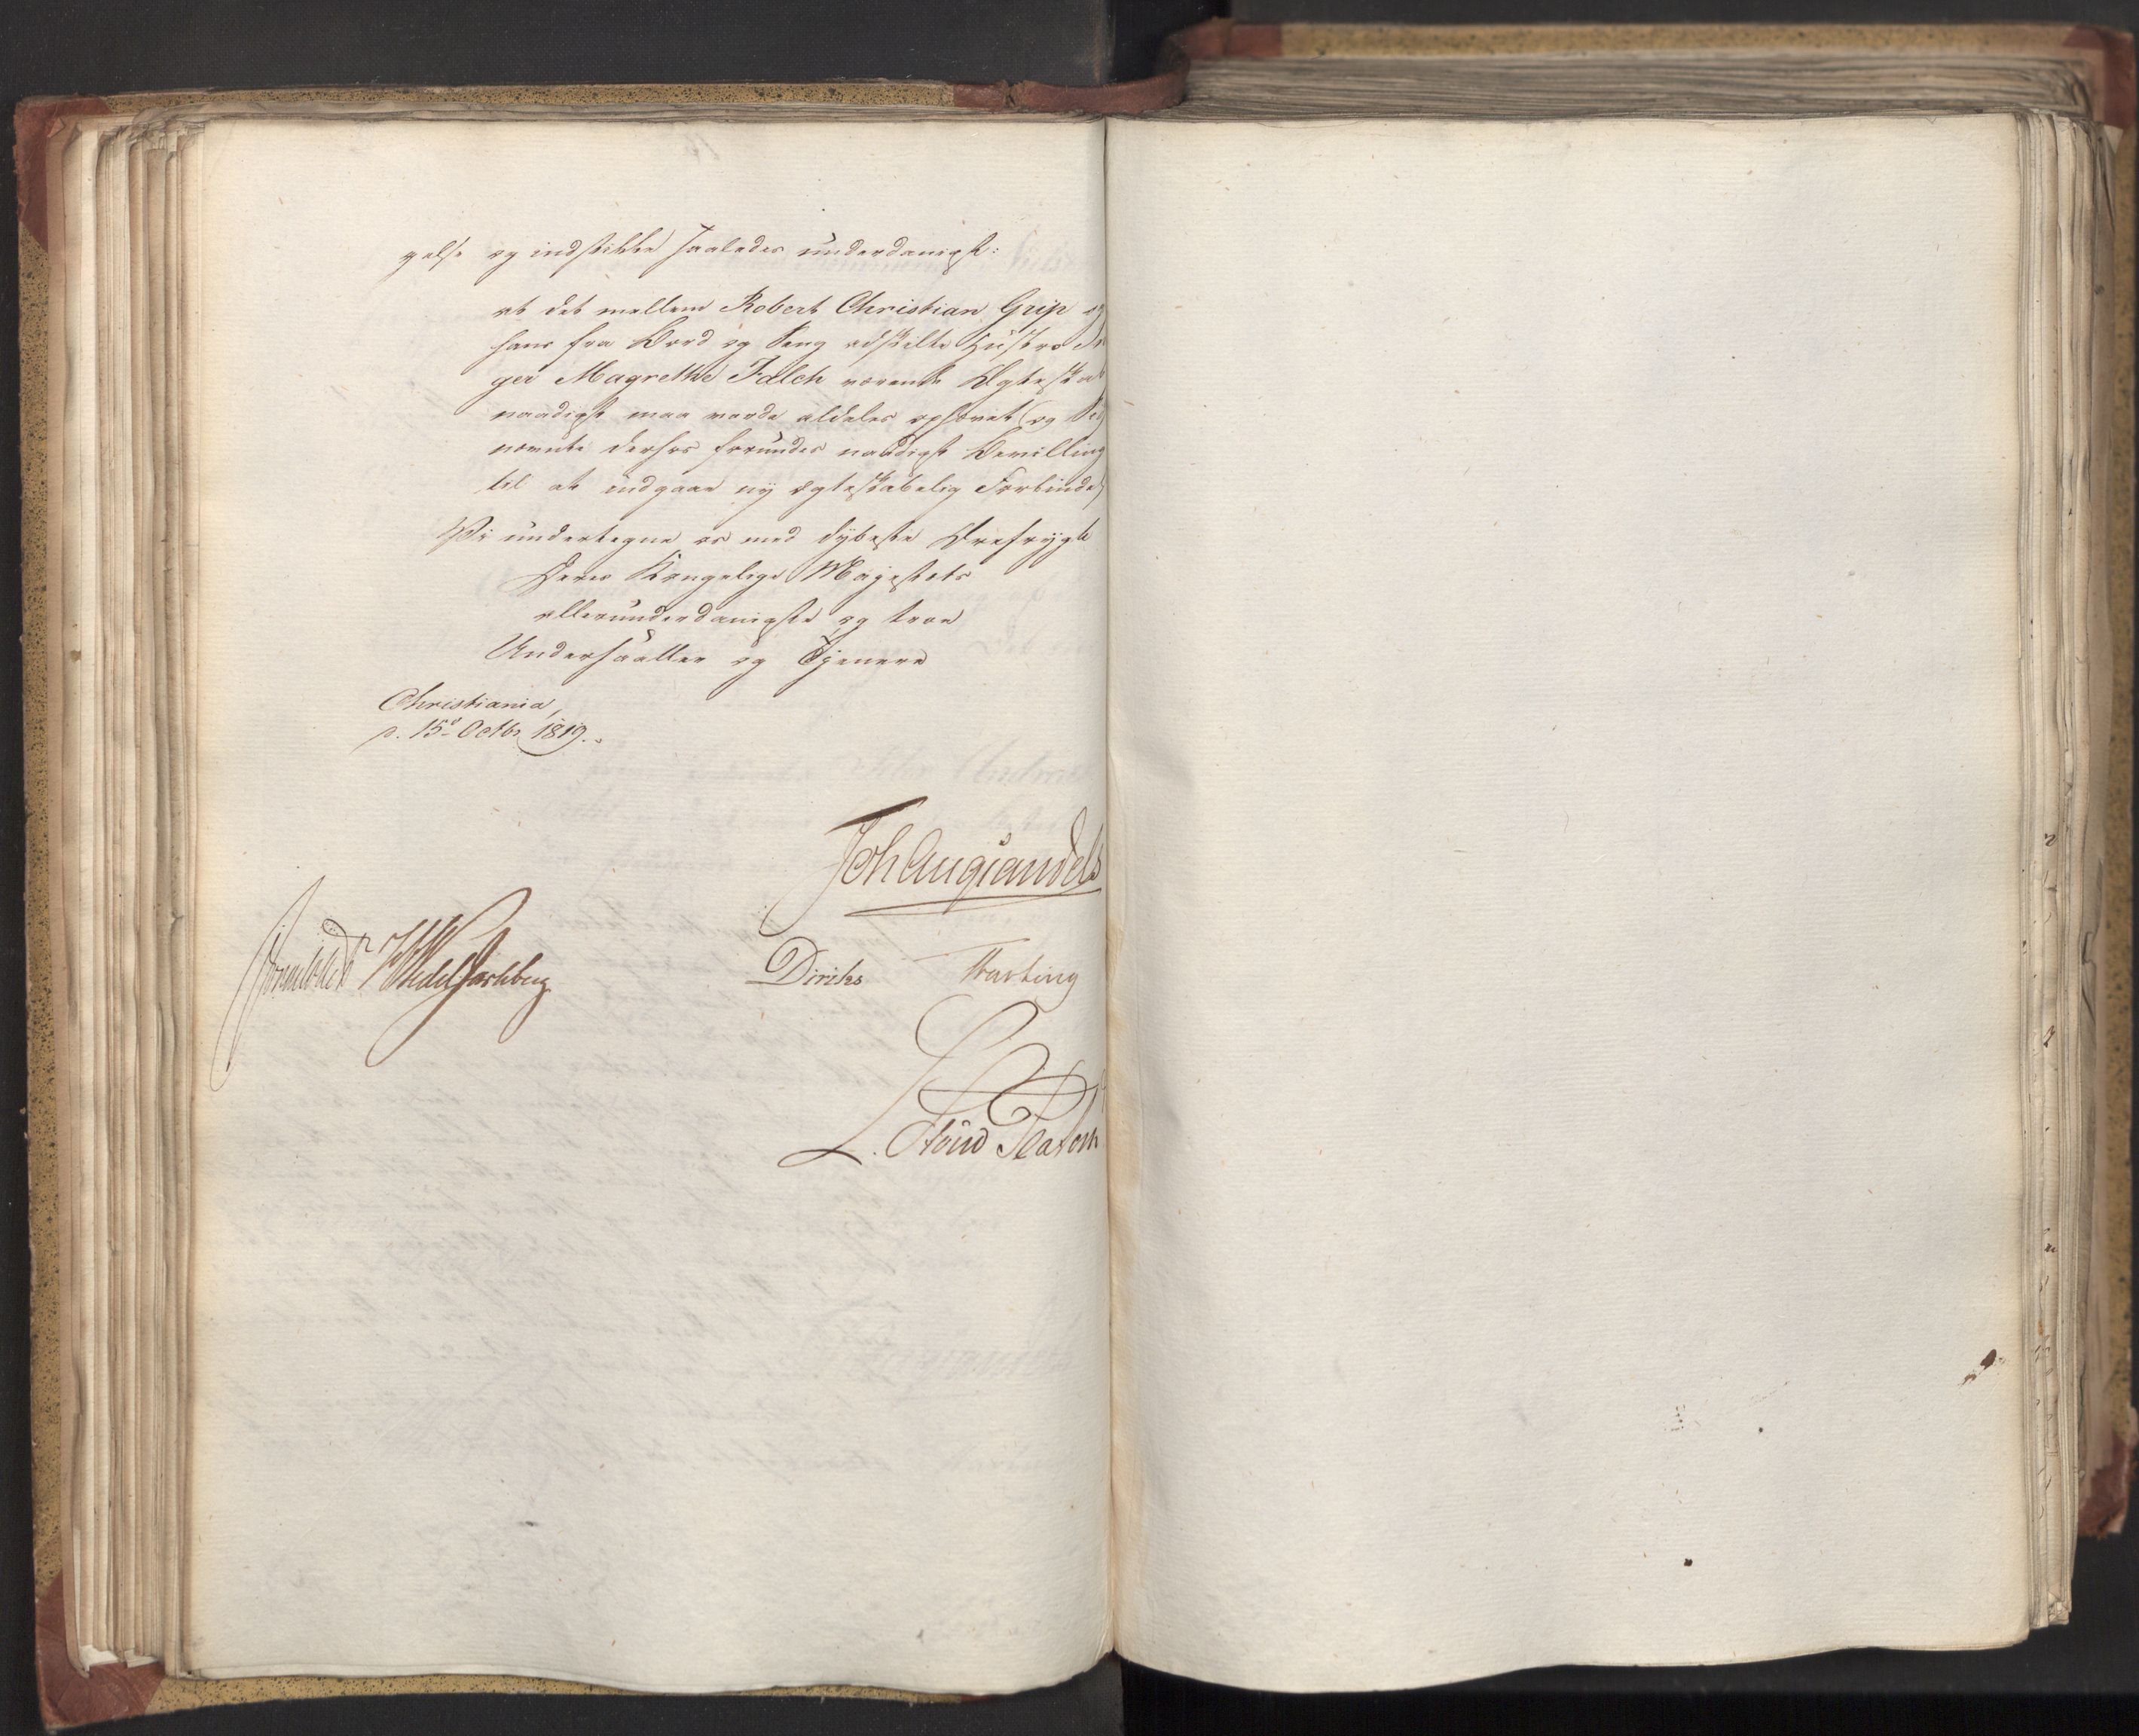 gelse og indstille saaledes underdanigst:
at det mellem Robert Christian Grip og
hans fra Bord og Seng adskilte Hustroe In
ger Magrethe Falch værende Ægteskab
naadigst maa vorde aldeles ophævet og
nævnte derhos forundes naadigst Bevilling
til at indgaae ny ægteskabelig Forbindel
Vi undertegne os med dybeste Ærefrygt
Deres Kongelige Majestets
allerunderdanigste og troe
Undersaatter og Tjenere
Christiania,
d. 15d Octbr 1819.
Joh Aug Sandels
Sommerhielm HWedelJarlsberg Diriks Fasting
L. Stoud Platou